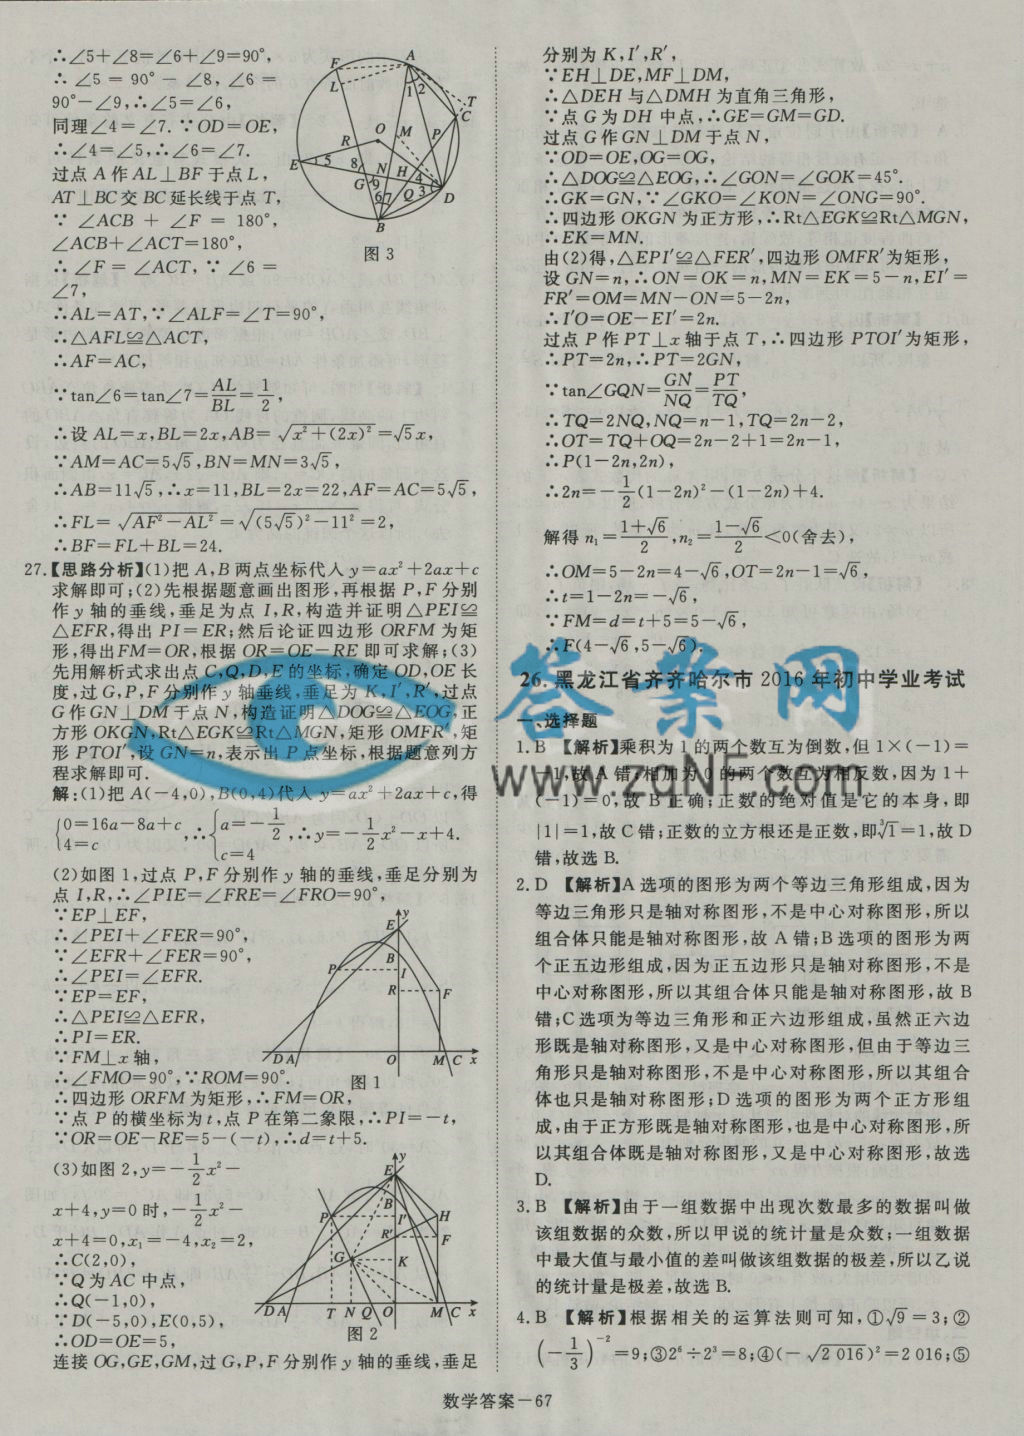 ∴∠5+∠8=∠6+∠9=90°,
∴ ∠5 = 90° − ∠8, ∠6 =
90°−∠9,∴∠5=∠6,
同理∠4=∠7.∵OD=OE,
∴∠4=∠5,∴∠6=∠7.
过点 A 作 AL⊥BF 于点 L,
AT⊥BC 交 BC 延长线于点 T,
∵ ∠ACB + ∠F = 180°,
∠ACB+∠ACT=180°,
∴ ∠F = ∠ACT, ∵ ∠6 =
∠7,
∴AL=AT,∵∠ALF=∠T=90°,
∴△AFL≌△ACT,
∴AF=AC,
∵tan∠6=tan∠7=AL/BL=1/2,
∴设 AL=x,BL=2x,AB=√(x²+(2x)²)=√5x,
∵AM=AC=5√5,BN=MN=3√5,
∴AB=11√5,∴x=11,BL=2x=22,AF=AC=5√5,
∴FL=√(AF²−AL²)=√((5√5)²−11²)=2,
∴BF=FL+BL=24.
图 3
27.【思路分析】(1)把 A,B 两点坐标代入 y=ax²+2ax+c
求解即可;(2)先根据题意画出图形,再根据 P,F 分别
作 y 轴的垂线,垂足为点 I,R,构造并证明△PEI≌
△EFR,得出 PI=ER;然后论证四边形 ORFM 为矩
形,得出FM=OR,根据 OR=OE−RE 即可求解;(3)
先用解析式求出点 C,Q,D,E 的坐标,确定 OD,OE 长
度,过 G,P,F 分别作 y 轴垂线,垂足为 K,I′,R′,过点
G 作 GN⊥DM 于点 N,构造证明△DOG≌△EOG,正
方形 OKGN,Rt△EGK≌Rt△MGN,矩形 OMFR′,矩
形 PTOI′,设 GN=n,表示出 P 点坐标,根据题意列方
程求解即可.
解:(1)把 A(−4,0),B(0,4)代入 y=ax²+2ax+c,得
{0=16a−8a+c, 4=c ∴{a=−1/2, c=4 ∴y=−1/2x²−x+4.
(2)如图 1,过点 P,F 分别作 y 轴的垂线,垂足分别为
点 I,R,∴∠PIE=∠FRE=∠FRO=90°,
∵EP⊥EF,
∴∠PEI+∠FER=90°,
∵∠EFR+∠FER=90°,
∴∠PEI=∠EFR.
∵EP=EF,
∴△PEI≌△EFR,
∴PI=ER.
∵FM⊥x 轴,
∴∠FMO=90°,∵ROM=90°.
∴四边形 ORFM 为矩形,∴FM=OR,
∵点 P 的横坐标为 t,点 P 在第二象限,∴PI=−t,
∵OR=OE−RE=5−(−t),∴d=t+5.
图 1
(3)如图 2,y=−1/2x²−
x+4,y=0 时,−1/2x²−
x+4=0,x₁=−4,x₂=2,
∴C(2,0),
∵Q 为 AC 中点,
∴Q(−1,0),
∵D(−5,0),E(0,5),
∴OD=OE=5,
图 2
连接 OG,GE,GM,过 G,P,F 分别作 y 轴的垂线,垂足
分别为 K,I′,R′,
∵EH⊥DE,MF⊥DM,
∴△DEH 与△DMH 为直角三角形,
∵点 G 为 DH 中点,∴GE=GM=GD.
过点 G 作 GN⊥DM 于点 N,
∵OD=OE,OG=OG,
∴△DOG≌△EOG,∴∠GON=∠GOK=45°.
∴GK=GN,∵∠GKO=∠KON=∠ONG=90°.
∴四边形 OKGN 为正方形,∴Rt△EGK≌Rt△MGN,
∴EK=MN.
由(2)得,△EPI′≌△FER′,四边形 OMFR′为矩形,
设 GN=n,∴ON=OK=n,MN=EK=5−n,EI′=
FR′=OM=MN−ON=5−2n,
∴I′O=OE−EI′=2n.
过点 P 作 PT⊥x 轴于点 T,∴四边形 PTOI′为矩形,
∴PT=2n,∴PT=2GN,
∵tan∠GQN=GN/NQ=PT/TQ,
∴TQ=2NQ,NQ=n−1,TQ=2n−2,
∴OT=TQ+OQ=2n−2+1=2n−1,
∴P(1−2n,2n),
∴2n=−1/2(1−2n)²−(1−2n)+4.
解得 n₁=(1+√6)/2,n₂=(1−√6)/2<0(舍去),
∴OM=5−2n=4−√6,OT=2n−1=√6,
∴t=1−2n=−√6,
∵FM=d=t+5=5−√6,
∴F(4−√6,5−√6).
26. 黑龙江省齐齐哈尔市 2016 年初中学业考试
一、选择题
1. B 【解析】乘积为 1 的两个数互为倒数,但 1×(−1)=
−1,故 A 错;相加为 0 的两个数互为相反数,因为 1+
(−1)=0,故 B 正确;正数的绝对值是它的本身,即
|1|=1,故 C 错;正数的立方根还是正数,即∛1=1,故 D
错,故选 B.
2. D 【解析】A 选项的图形为两个等边三角形组成,因为
等边三角形只是轴对称图形,不是中心对称图形,所以
组合体只能是轴对称图形,故 A 错;B 选项的图形为两
个正五边形组成,因为正五边形只是轴对称图形,不是
中心对称图形,所以其组合体只能是轴对称图形,故 B
错;C 选项为等边三角形和正六边形组成,虽然正六边
形既是轴对称图形,又是中心对称图形,但由于等边三
角形只是轴对称图形,不是中心对称图形,所以其组合
体也只是轴对称图形;D 选项的图形为两个正方形组
成,由于正方形既是轴对称图形,也是中心对称图形,所
以其组合体既是轴对称图形,又是中心对称图形,故选
D.
3. B 【解析】由于一组数据中出现次数最多的数据叫做
该组数据的众数,所以甲说的统计量是众数;一组数据
中最大值与最小值的差叫做该组数据的极差,所以乙说
的统计量是极差,故选 B.
4. B 【解析】根据相关的运算法则可知,①√9=3;②
(−1/3)⁻²=9;③2⁶÷2³=8;④(−√2 016)²=2 016;⑤
数学答案−67
答案网
www.zqNF.com